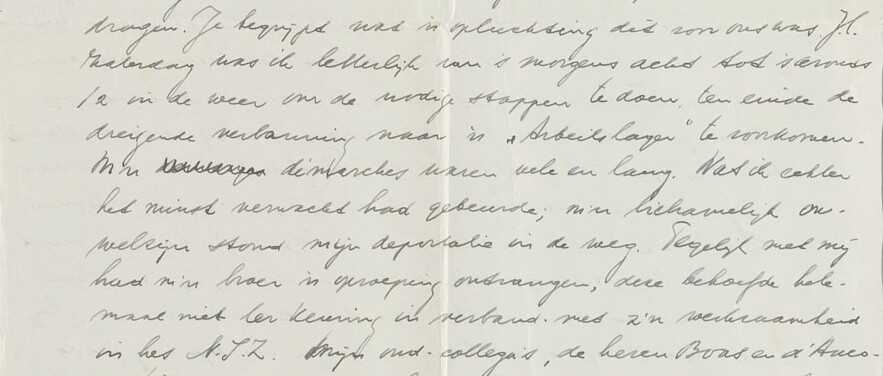 dragen. Je begrijpt wat 'n opluchting dit voor ons was. J.l.
Zaterdag was ik letterlijk van 's morgens acht tot 's avonds
12 in de weer om de nodige stappen te doen, ten einde de
dreigende verbanning naar 'n "Arbeitslager" te voorkomen.
M'n démarches waren vele en lang. Wat ik echter
het minst verwacht had gebeurde; m'n lichamelijk on-
welzijn stond mijn deportatie in de weg. Tegelijk met mij
had m'n broer 'n oproeping ontvangen, deze behoefde hele-
maal niet ter keuring in verband met z'n werkzaamheid
in het N.I.Z. Mijn oud-collega's, de heren Boas en d'Anco-